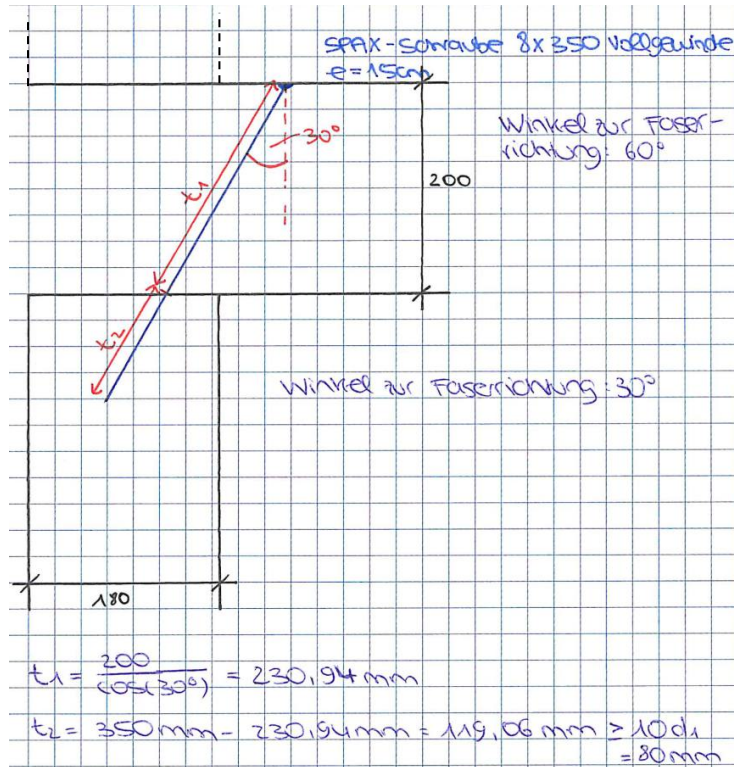 SPAX-Schraube 8x350 Vollgewinde
e=15cm
30°
Winkel zur Faser-
richtung: 60°
t1
200
t2
Winkel zur Faserrichtung: 30°
180
t1 = 200 / cos(30°) = 230,94 mm
t2 = 350mm - 230,94mm = 119,06 mm ≥ 10d1
= 80mm